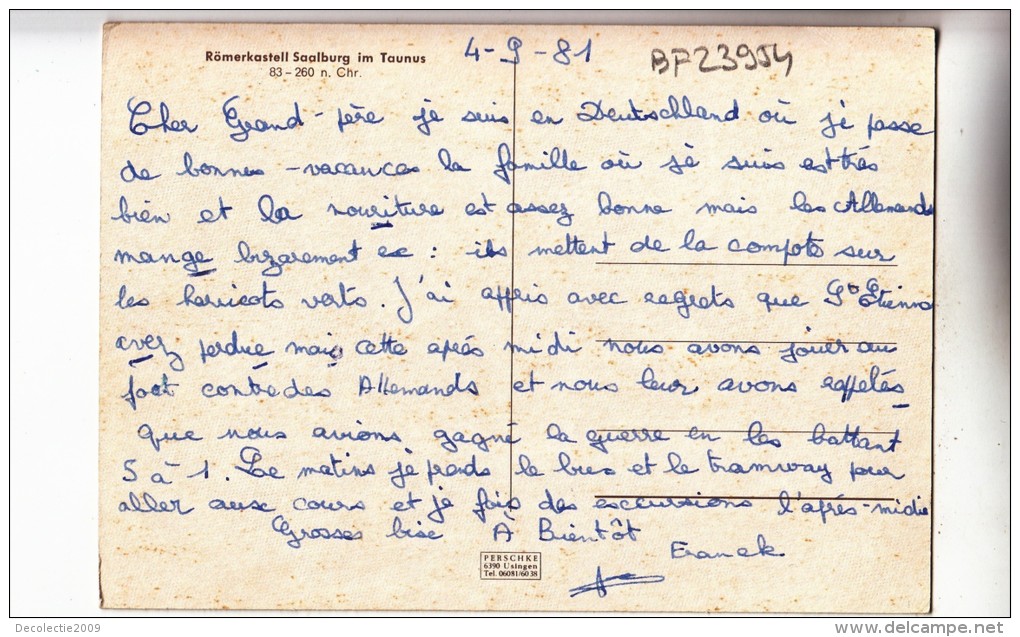 Römerkastell Saalburg im Taunus
83-260 n. Chr.
4-9-81
BP23954
Cher Grand-père je suis en Deutschland où je passe
de bonnes-vacances la famille où je suis est très
bien et la nouriture est assez bonne mais les Allemands
mange bizarement ex : ils mettent de la compote sur
les haricots verts. J'ai appris avec regrets que St Etienne
avez perdue mais cette après midi nous avons jouer au
foot contre des Allemands et nous leur avons rappelés
que nous avions gagné la guerre en les battant
5 à 1. Le matins je prends le bus et le tramway pour
aller aux cours et je fais des excursions l'après-midi
Grosses bise À Bientôt
Franck
PERSCHKE
6390 Usingen
Tel. 06081/6038
Decolectie2009
www.delcampe.net